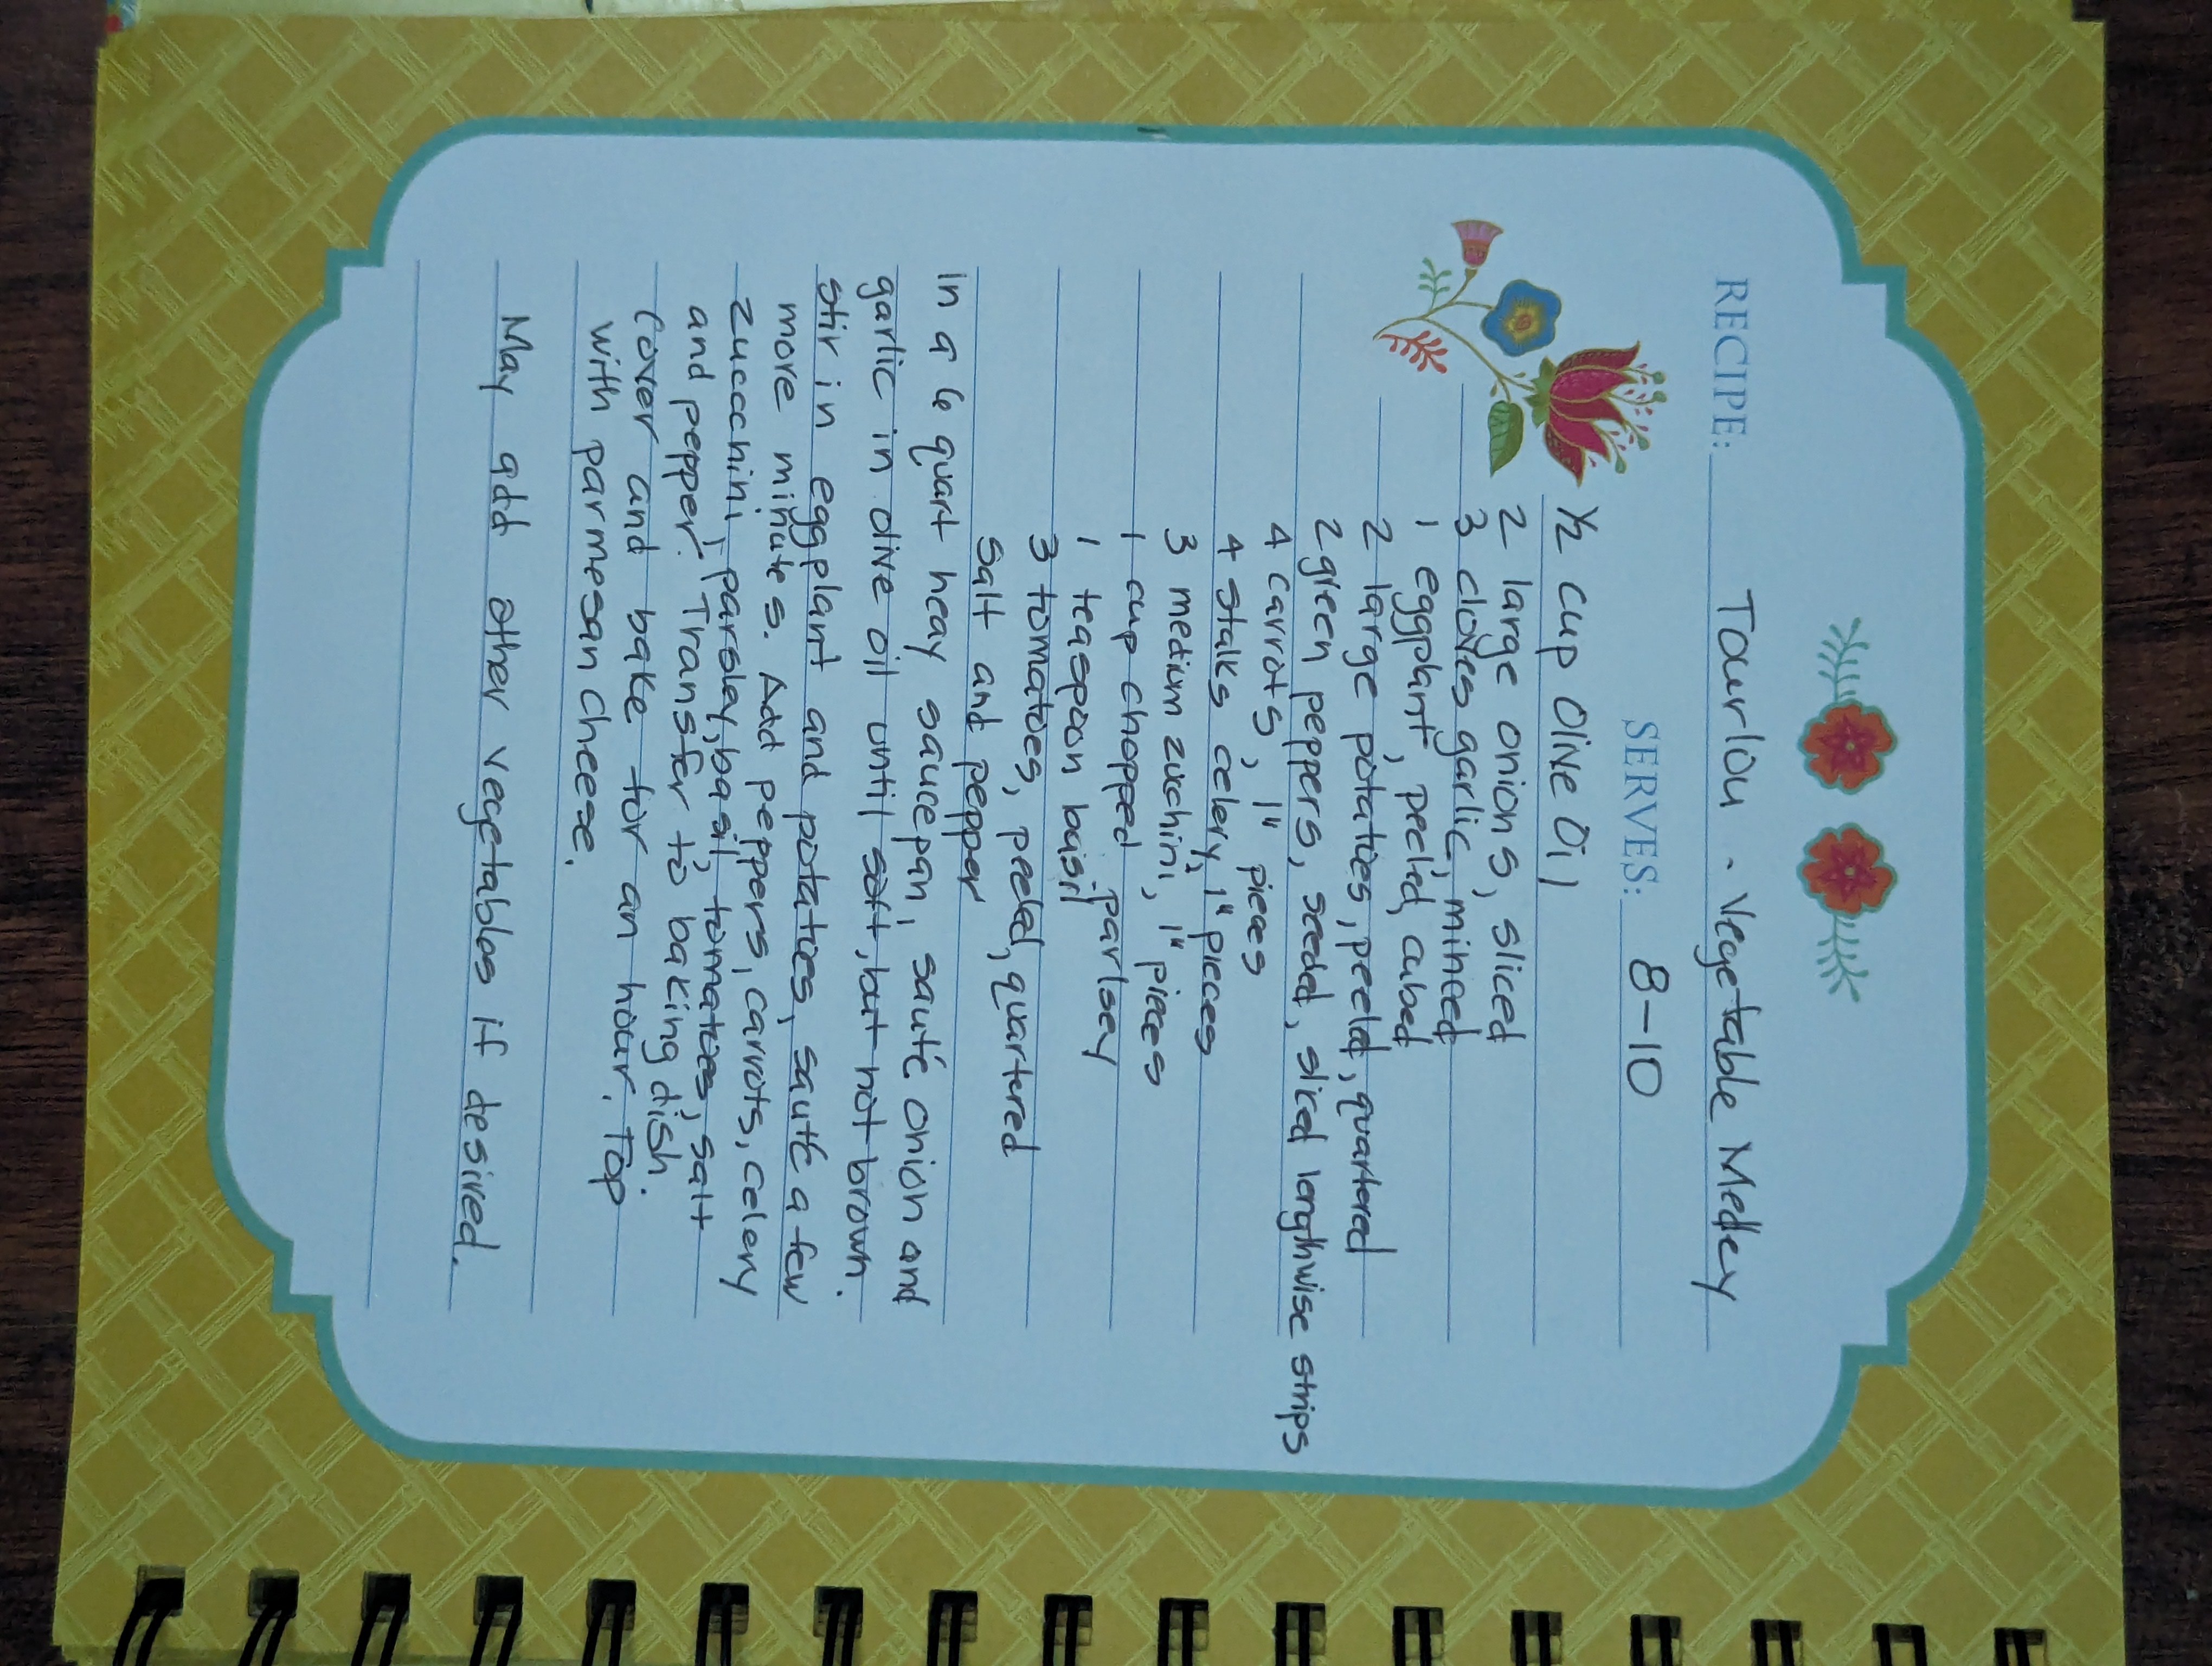 RECIPE: Tourlou - Vegetable Medley
SERVES: 8-10
1/2 cup Olive Oil
2 large onions, sliced
3 cloves garlic, minced
1 eggplant, peeled, cubed
2 large potatoes, peeled, quartered
2 green peppers, seeded, sliced lengthwise strips
4 carrots, 1" pieces
4 stalks celery, 1" pieces
3 medium zuchini, 1" pieces
1 cup chopped parlsey
1 teaspoon basil
3 tomatoes, peeled, quartered
salt and pepper
In a 6 quart heay saucepan, sauté onion and
garlic in olive oil until soft, but not brown.
stir in eggplant and potatoes, sauté a few
more minutes. Add peppers, carrots, celery
zuccchini, parsley, basil, tomatoes, salt
and pepper. Transfer to baking dish.
Cover and bake for an hour. Top
with parmesan cheese.
May add other vegetables if desired.